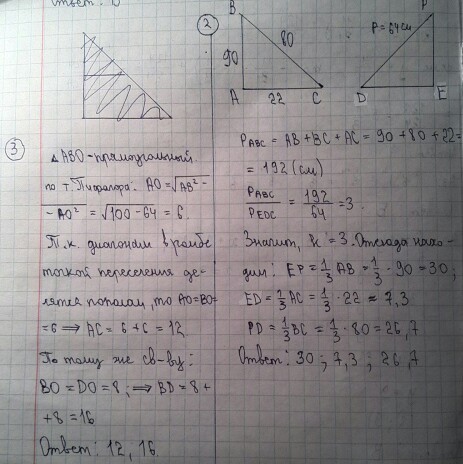 Ответ: 10
2
B
80
90
A
22
C
P
P = 64 см
D
E
P ABC = AB + BC + AC = 90 + 80 + 22 =
= 192 (см)
P ABC / P EDC = 192 / 64 = 3.
Значит, k = 3. Отсюда нахо-
дим: EP = 1/3 AB = 1/3 · 90 = 30;
ED = 1/3 AC = 1/3 · 22 = 7,3
PD = 1/3 BC = 1/3 · 80 = 26,7
Ответ: 30; 7,3; 26,7
3
△ ABO - прямоугольный.
по т. Пифагора: AO = √AB² -
- AO² = √100 - 64 = 6.
Т.к. диагонали в ромбе
точкой пересечения де-
лятся пополам, то AO = BO =
= 6 ⟹ AC = 6 + 6 = 12
По тому же св-ву:
BO = DO = 8; ⟹ BD = 8 +
+ 8 = 16
Ответ: 12, 16.